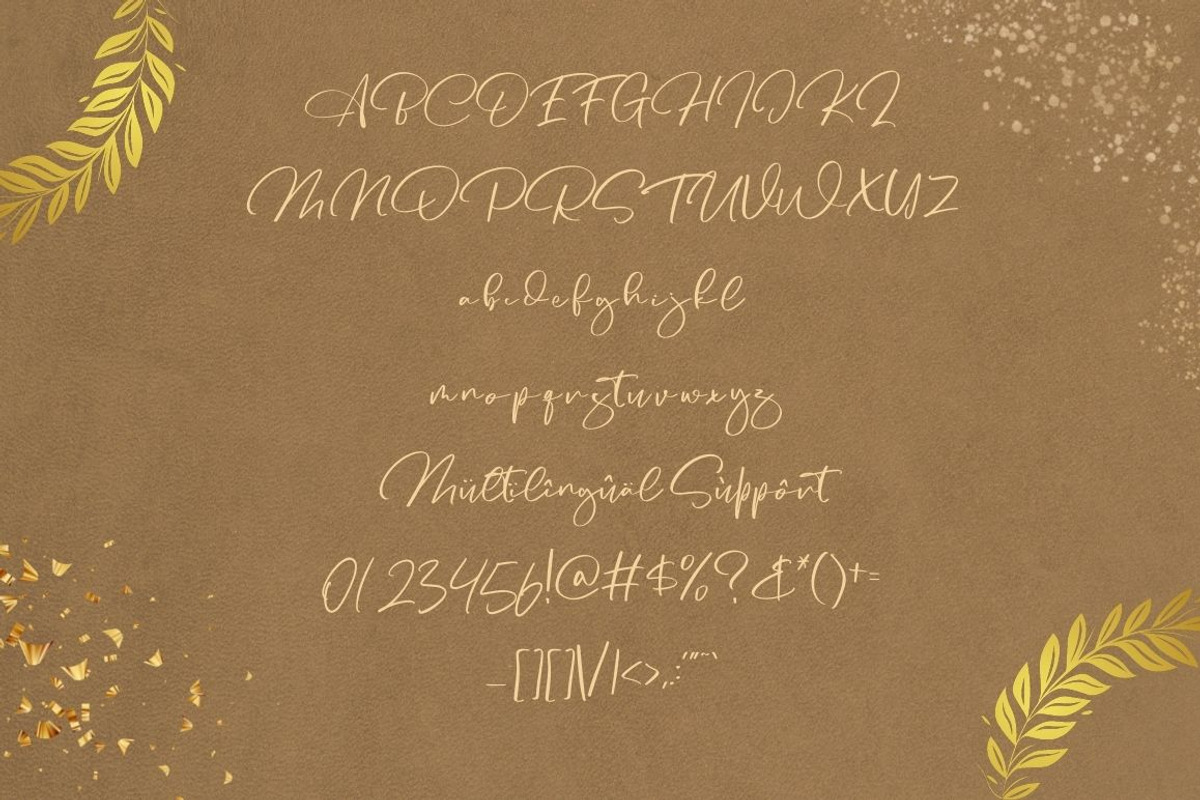 ABCDEFGHIJKL
MNOPRSTUVWXYZ
abcdefghijkl
mnopqrstuvwxyz
Mültilîngûäl Sùppôrt
0123456!@#$%?&*()+=
_[][]\/|<>,.:'"~`